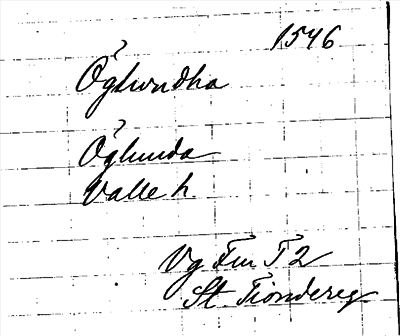 1546
Öglundha
Öglunda
Valle h.
Vg Fur T 2
St. Tiondereg